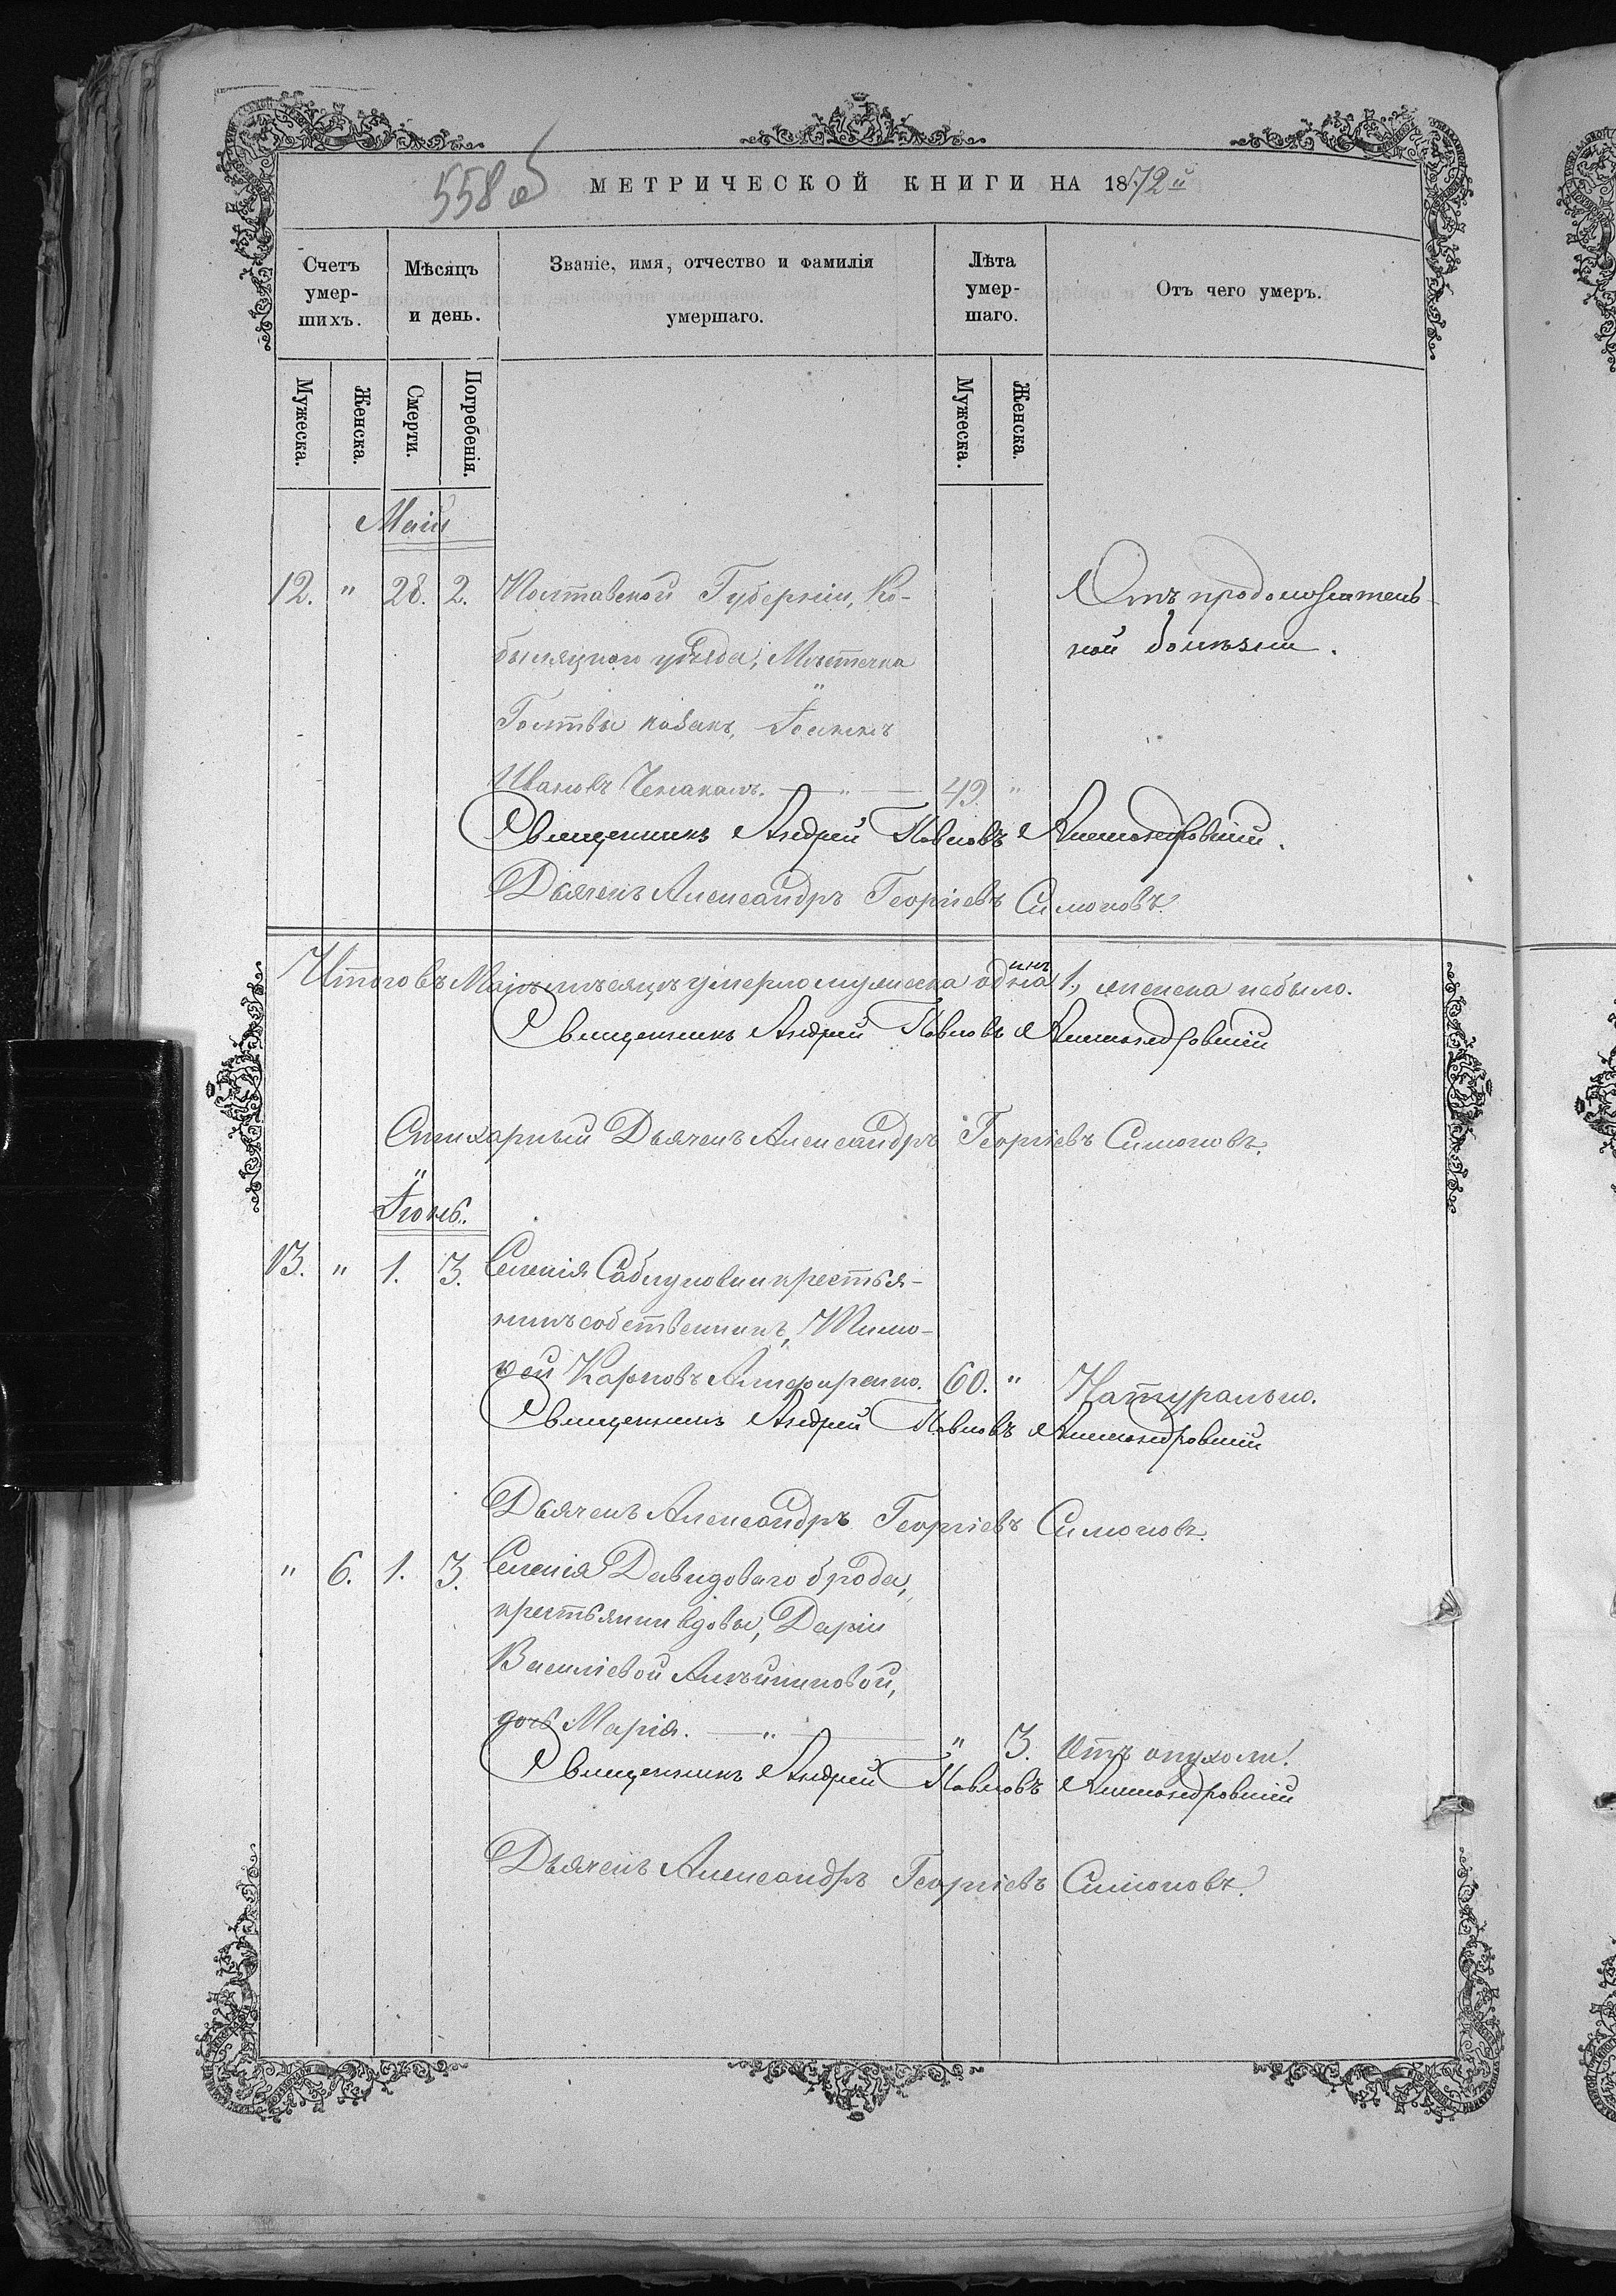 558 об
МЕТРИЧЕСКОЙ КНИГИ НА 1872й
Счетъ умер-шихъ.
Мѣсяцъ и день.
Званіе, имя, отчество и фамилія умершаго.
Лѣта умер-шаго.
Отъ чего умеръ.
Мужеска.
Женска.
Смерти.
Погребенія.
Мужеска.
Женска.
Маій
12. " 28. 2. Полтавской Губерніи, Ко- Отъ продолжитель-
быляцкого уѣзда, Мѣстечка ной болѣзни.
Голтвы козакъ, Іоаннъ
Ивановъ 49. "
Священникъ Андрей Павловъ
Дьячекъ Александръ Георгіевъ Симоновъ.
Итого въ Маіѣ мѣсяцѣ умерло мужеска одинъ 1, женска небыло.
Священникъ Андрей Павловъ
Стихарный Дьячекъ Александръ Георгіевъ Симоновъ.
Іюнь.
13. " 1. 3. Селенія Саблуковки крестья-
нинъ собственникъ, Тимо-
ѳей Карповъ 60. " Натурально.
Священникъ Андрей Павловъ
Дьячекъ Александръ Георгіевъ Симоновъ.
" 6. 1. 3. Селенія Давидоваго брода,
крестьянки вдовы, Даріи
Василіевой
дочь Марія. " 3. Отъ опухоли.
Священникъ Андрей Павловъ
Дьячекъ Александръ Георгіевъ Симоновъ.